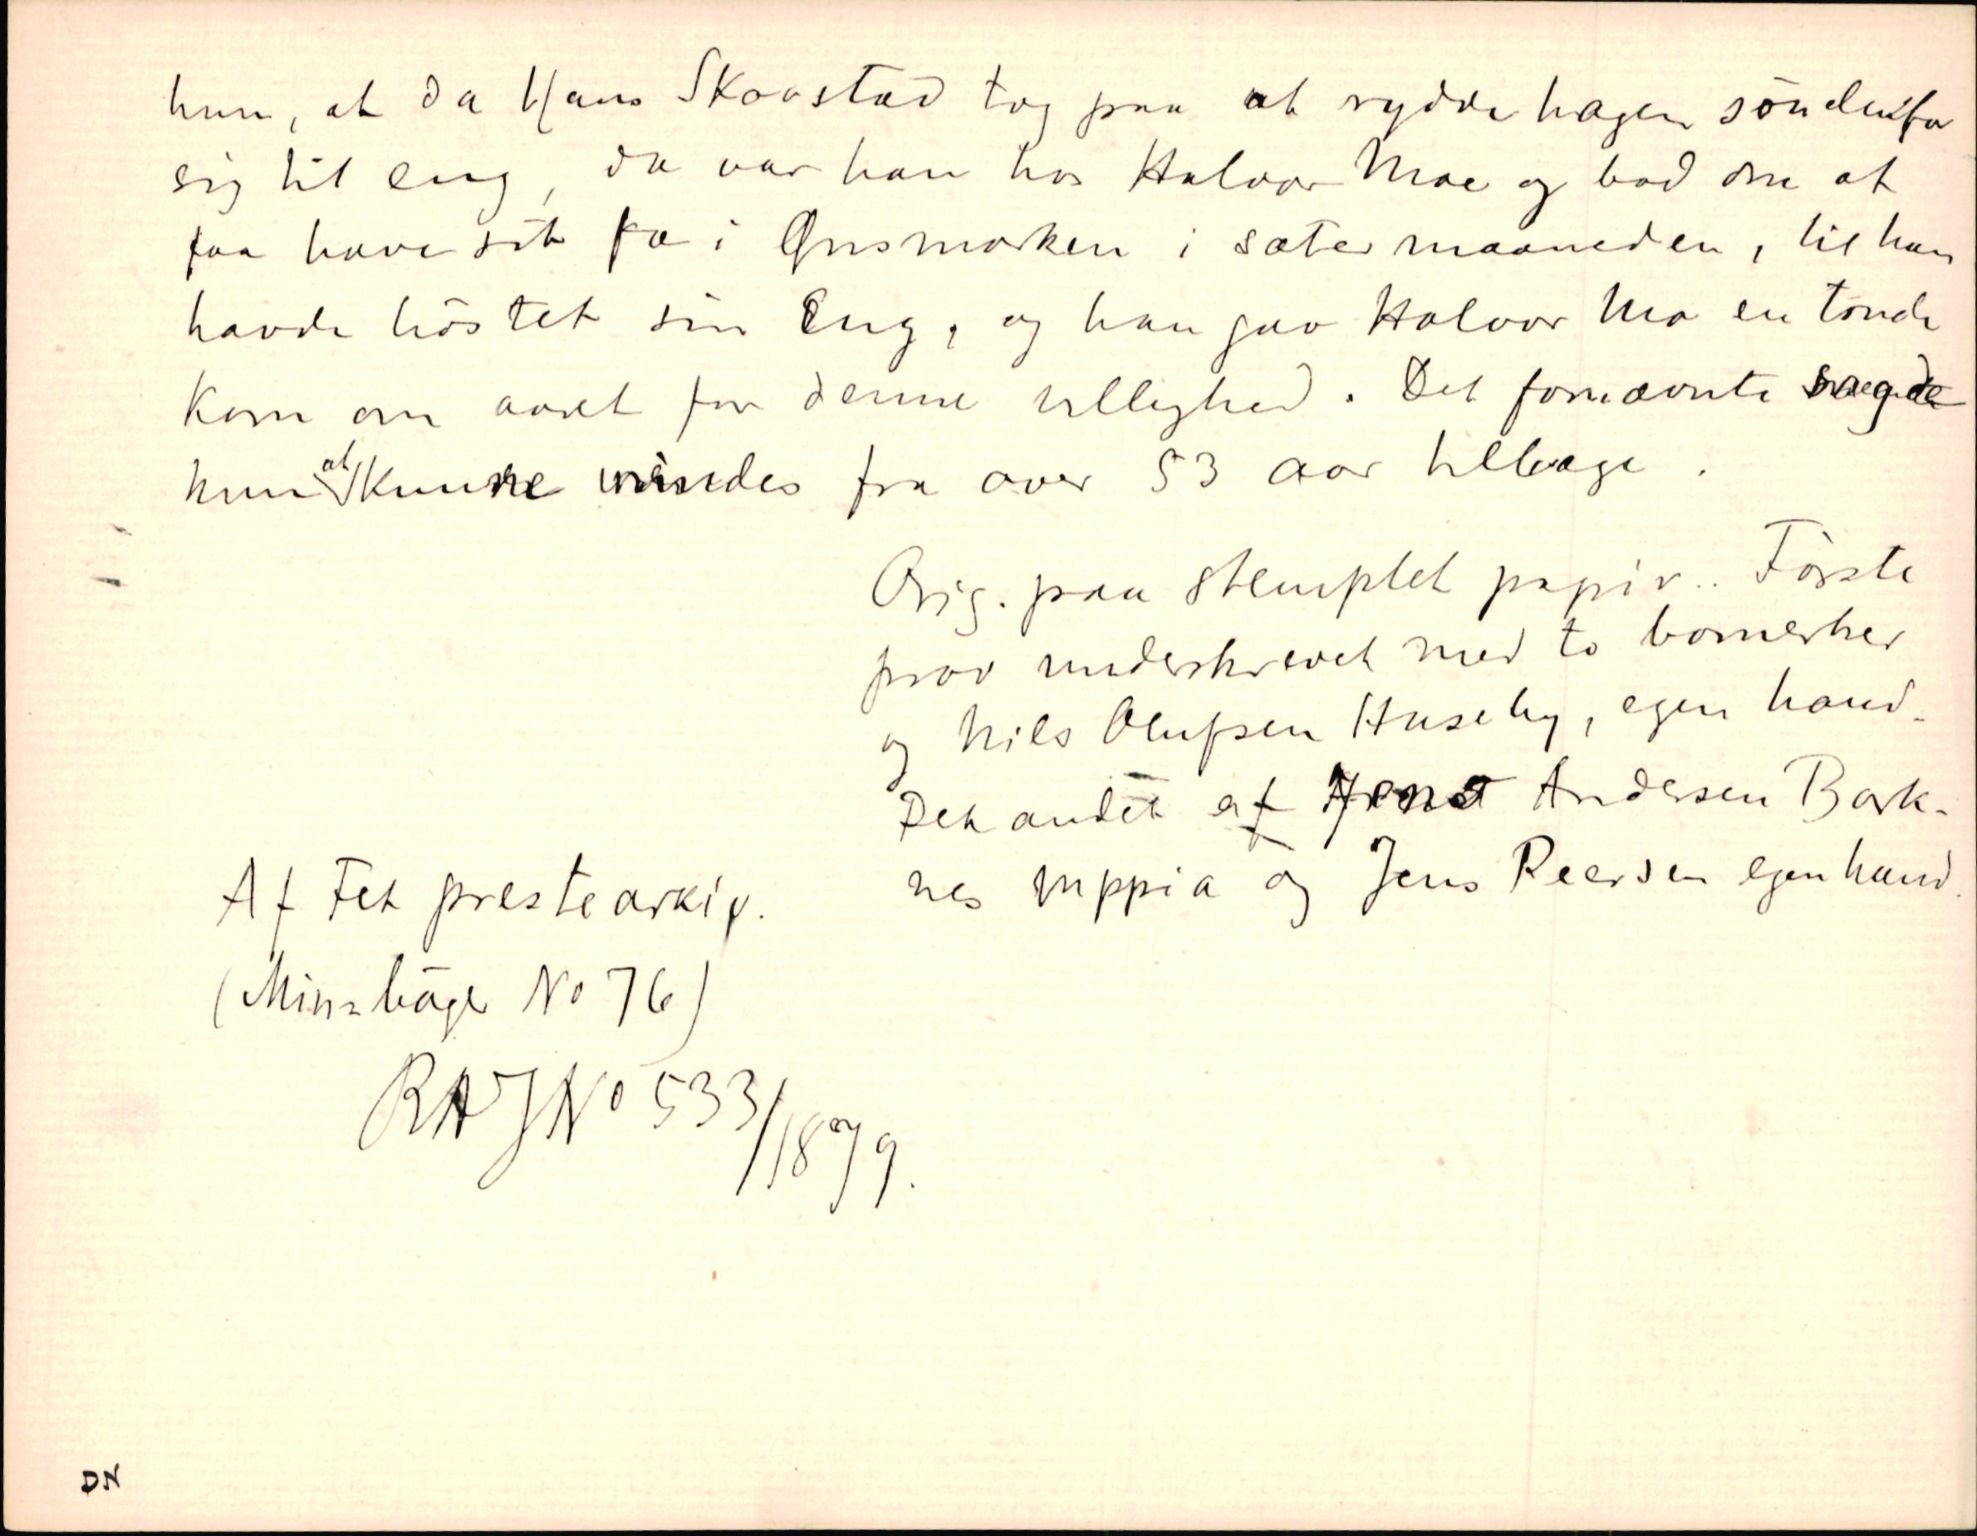 hun, at da Hans Skovstad tog paa at rydde hagen söndenfor
sig til eng, da var han hos Halvor Moe og bad om at
faa have sit fæ i Gnsmarken i sætermaaneden, til han
havde höstet sin Eng, og han gav Halvor Mo en tönde
Korn om aaret for denne villighed. Det fornævnte sagde
hun at kunne mindes fra over 53 aar tilbage.
Orig. paa stemplet papir.. Förste
prov underskrevet med to bomerker
og Nils Olufsen Huseby, egen hand.
Det andet af Andersen Bark-
nes mppia og Jens Reersen egen hand.
Af Fet prestearkiv.
(Min=böger No 76)
RA J No 533/1879.
DN